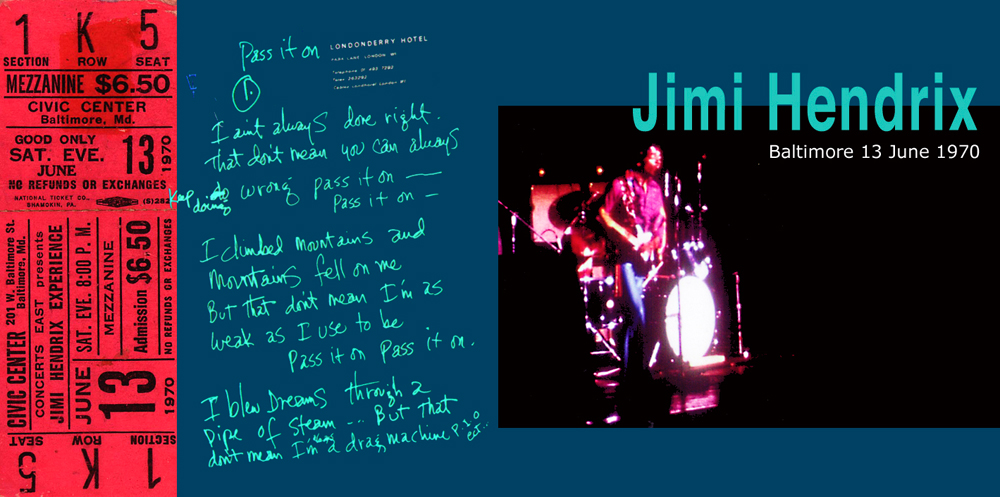 1 K 5
SECTION ROW SEAT
MEZZANINE $6.50
CIVIC CENTER
Baltimore, Md.
GOOD ONLY
SAT. EVE.
JUNE
13
1970
NO REFUNDS OR EXCHANGES
NATIONAL TICKET CO.,
SHAMOKIN, PA.
CIVIC CENTER 201 W. Baltimore St.
Baltimore, Md.
CONCERTS EAST presents
JIMI HENDRIX EXPERIENCE
JUNE SAT. EVE. 8:00 P. M.
13
MEZZANINE
Admission $6.50
1970 NO REFUNDS OR EXCHANGES
SECTION ROW SEAT
1 K 5
Pass it on
LONDONDERRY HOTEL
PARK LANE LONDON W1
1.
I aint always done right.
That dont mean you can always
Keep doing wrong pass it on —
Pass it on —
I climbed mountains and
Mountains fell on me
But that dont mean I'm as
weak as I use to be
Pass it on Pass it on.
I blew Dreams through a
Pipe of Steam ... But that
dont mean I'm a drag machine
Jimi Hendrix
Baltimore 13 June 1970